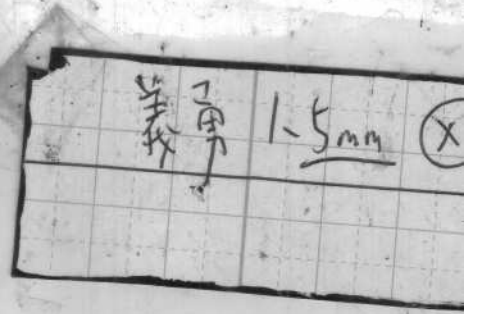 義勇 1.5mm ⓧ